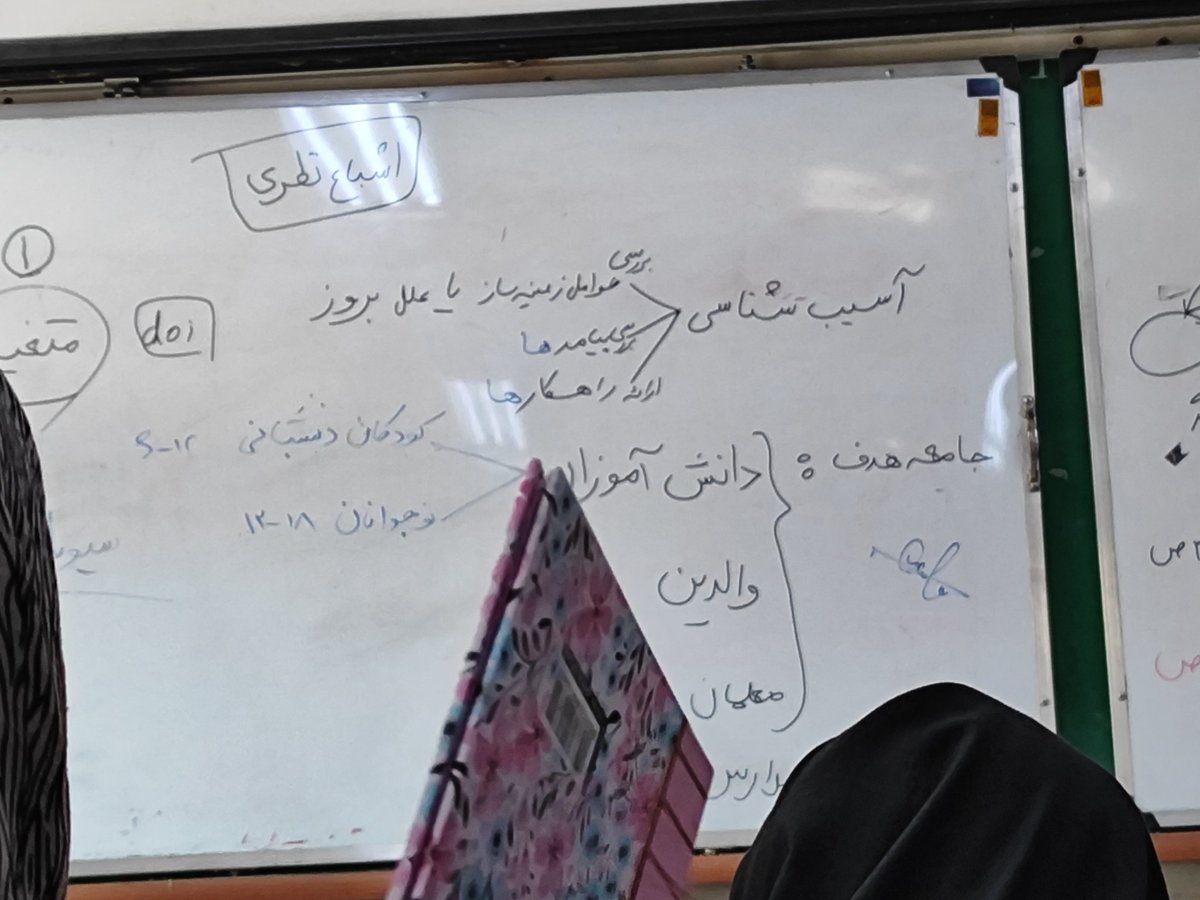 اشباع نظری
۱
متغیر
doi
آسیب شناسی
بررسی عوامل زمینه ساز یا علل بروز
بررسی پیامدها
ارائه راهکارها
جامعه هدف :
دانش آموزان
کودکان دبستانی ۶-۱۲
نوجوانان ۱۲-۱۸
والدین
معلمان
مدارس